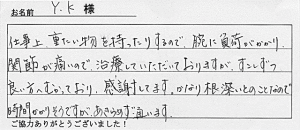 お名前 Y.K 様
仕事上重たい物を持ったりするので、腕に負荷がかかり、
関節が痛いので治療していただいておりますが、すこしずつ
良い方へむかっており、感謝してます。かなり根深いとのことなので
時間かかりそうですが、あきらめず通います。
ご協力ありがとうございました!